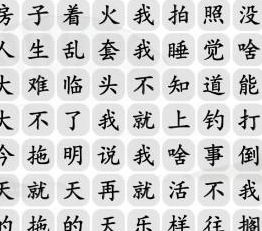 房子着火我拍照没
人生乱套我睡觉啥
大难临头不知道能
大不了我就上钓打
今拖明说我啥事倒
天就天再就活不我
的拖的天乐样往搁